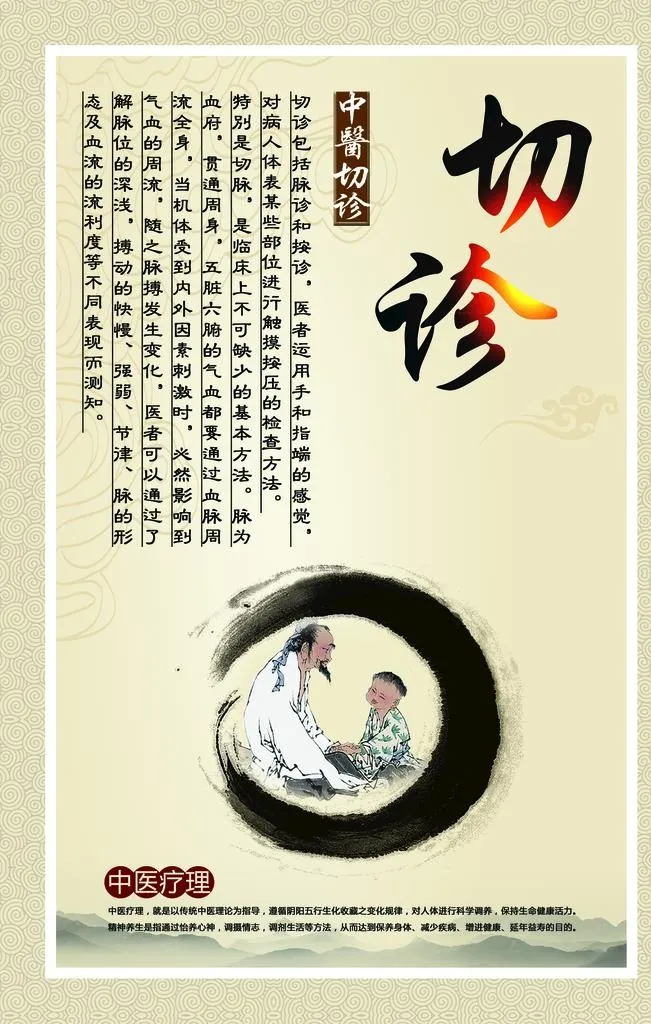 切诊
中醫切诊
切诊包括脉诊和按诊，医者运用手和指端的感觉，
对病人体表某些部位进行触摸按压的检查方法。
特别是切脉，是临床上不可缺少的基本方法。脉为
血府，贯通周身，五脏六腑的气血都要通过血脉周
流全身，当机体受到内外因素刺激时，必然影响到
气血的周流，随之脉搏发生变化，医者可以通过了
解脉位的深浅，搏动的快慢、强弱、节律、脉的形
态及血流的流利度等不同表现而测知。
中医疗理
中医疗理，就是以传统中医理论为指导，遵循阴阳五行生化收藏之变化规律，对人体进行科学调养，保持生命健康活力。
精神养生是指通过怡养心神，调摄情志，调剂生活等方法，从而达到保养身体、减少疾病、增进健康、延年益寿的目的。